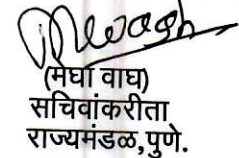 (मेघा वाघ)
सचिवांकरीता
राज्यमंडळ,पुणे.